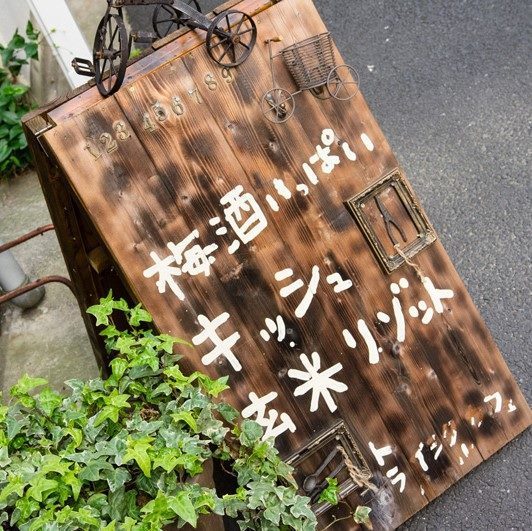 123456789
梅酒いっぱい
キッシュ
玄米リゾット